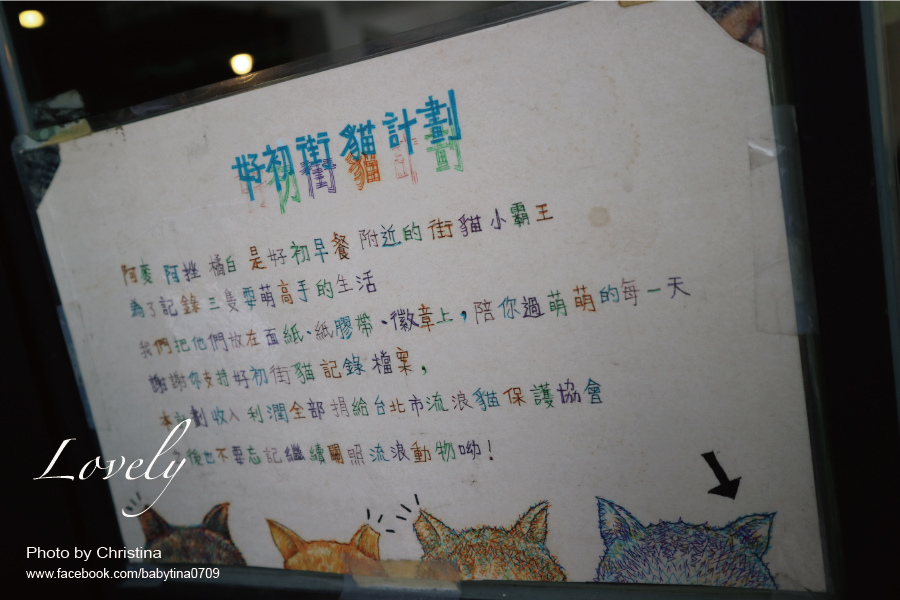 好初街貓計劃
阿麥 阿挫 橘白 是好初早餐 附近的街貓小霸王
為了記錄三隻耍萌高手的生活
我們把他們放在面紙、紙膠帶、徽章上，陪你過萌萌的每一天
謝謝你支持好初街貓記錄檔案，
本計劃收入利潤全部捐給台北市流浪貓保護協會
之後也不要忘記繼續關照流浪動物呦！
Lovely
Photo by Christina
www.facebook.com/babytina0709